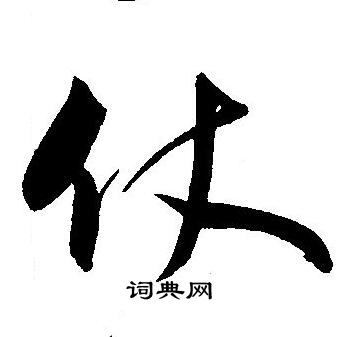 仗
词典网